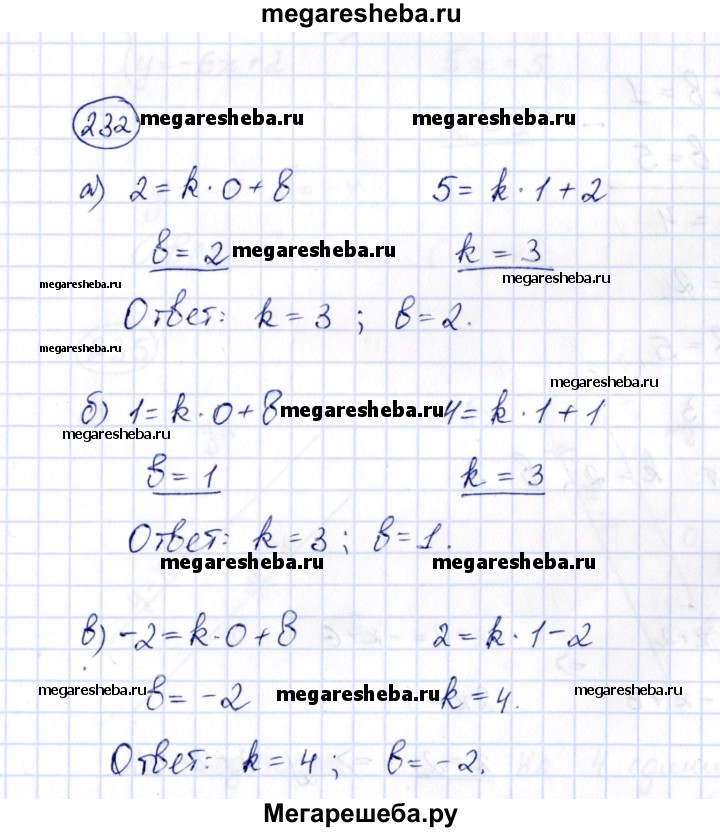 megaresheba.ru
232 megaresheba.ru megaresheba.ru
а) 2 = k · 0 + в 5 = k · 1 + 2
в = 2 megaresheba.ru k = 3
megaresheba.ru megaresheba.ru
Ответ: k = 3 ; в = 2.
megaresheba.ru
megaresheba.ru
б) 1 = k · 0 + в megaresheba.ru 4 = k · 1 + 1
megaresheba.ru
в = 1 k = 3
Ответ: k = 3 ; в = 1.
megaresheba.ru megaresheba.ru
в) -2 = k · 0 + в 2 = k · 1 - 2
megaresheba.ru в = -2 megaresheba.ru k = 4. megaresheba.ru
Ответ: k = 4 ; в = -2.
Мегарешеба.ру